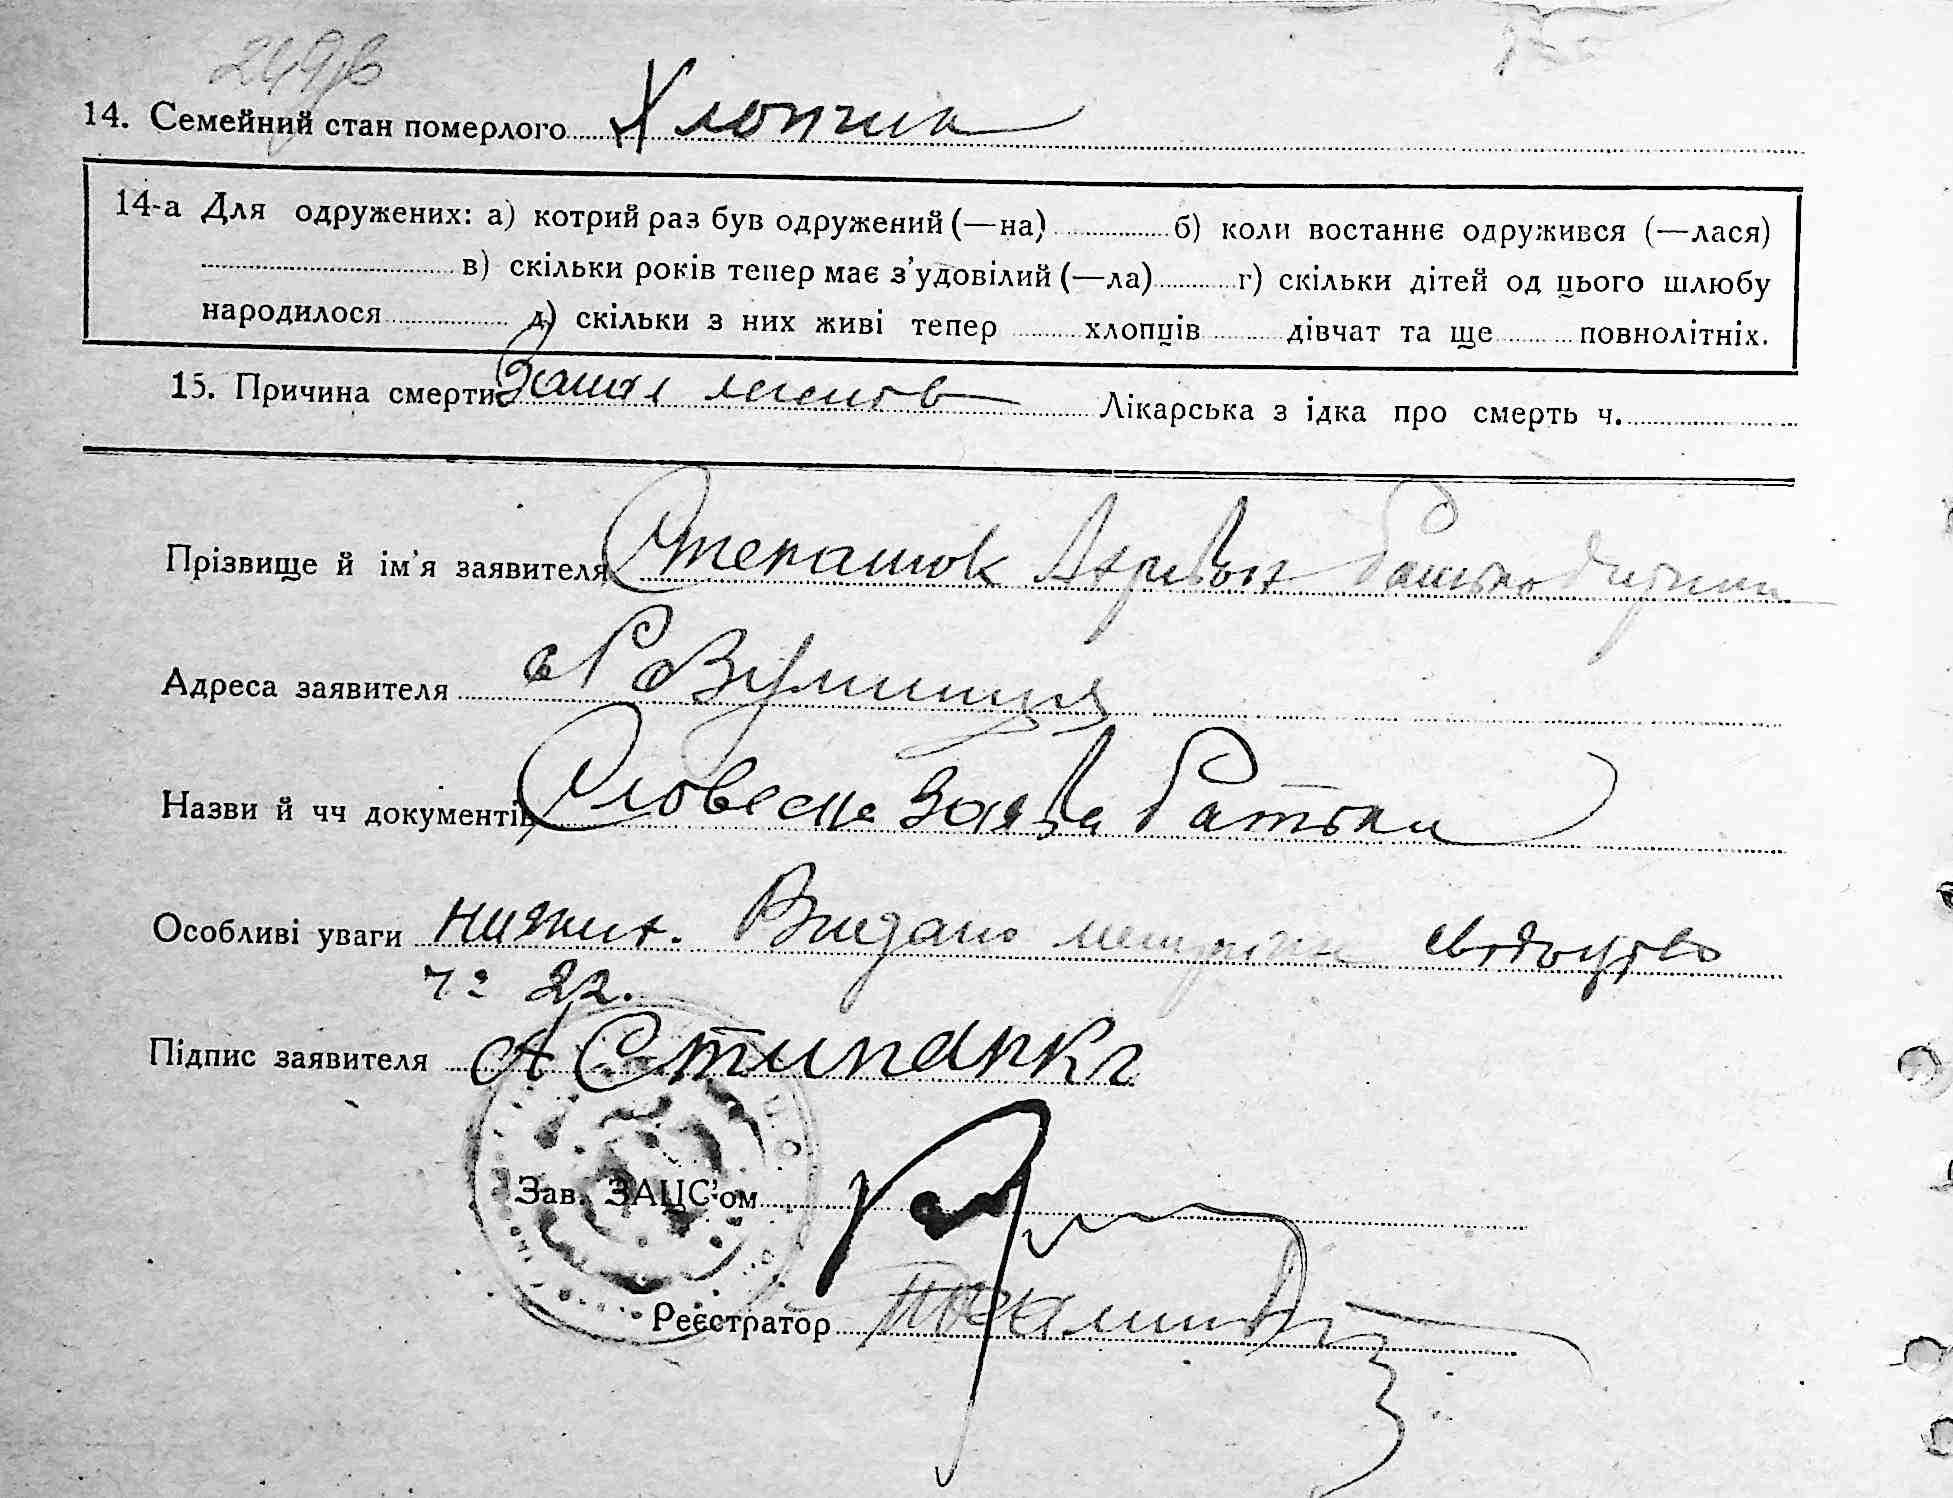 14. Семейний стан померлого Хлопчик
14-а Для одружених: а) котрий раз був одружений (—на) б) коли востаннє одружився (—лася)
в) скільки років тепер має з'удовілий (—ла) г) скільки дітей од цього шлюбу
народилося д) скільки з них живі тепер хлопців дівчат та ще повнолітніх.
15. Причина смерти Запал легенів Лікарська з ідка про смерть ч.
Прізвище й ім'я заявителя Степанюк батько дитини
Адреса заявителя Вулиця
Назви й чч документів Словесна заява батька
Особливі уваги Видано свідоцтво
22.
Підпис заявителя А
Зав. ЗАЦС'ом
Реєстратор